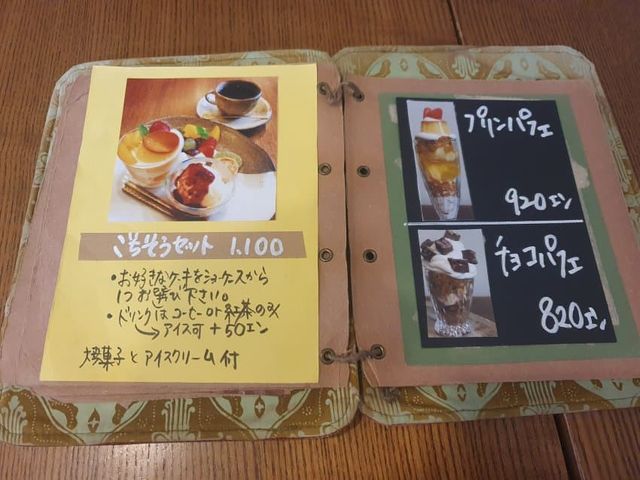 ごちそうセット 1.100
・お好きなケーキをショーケースから
1つお選び下さい。
・ドリンクはコーヒー or 紅茶のみ
→アイス可 +50エン
焼菓子とアイスクリーム付
プリンパフェ
920エン
チョコパフェ
820エン